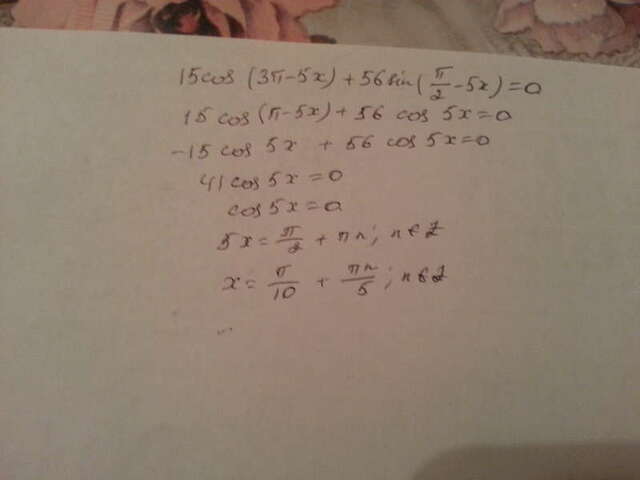 15cos (3π-5x)+56sin(π/2-5x)=0
15cos(π-5x)+56 cos 5x=0
-15 cos 5x + 56 cos 5x=0
41cos 5x=0
cos 5x=0
5x= π/2 + πn; n∈Z
x= π/10 + πn/5; n∈Z